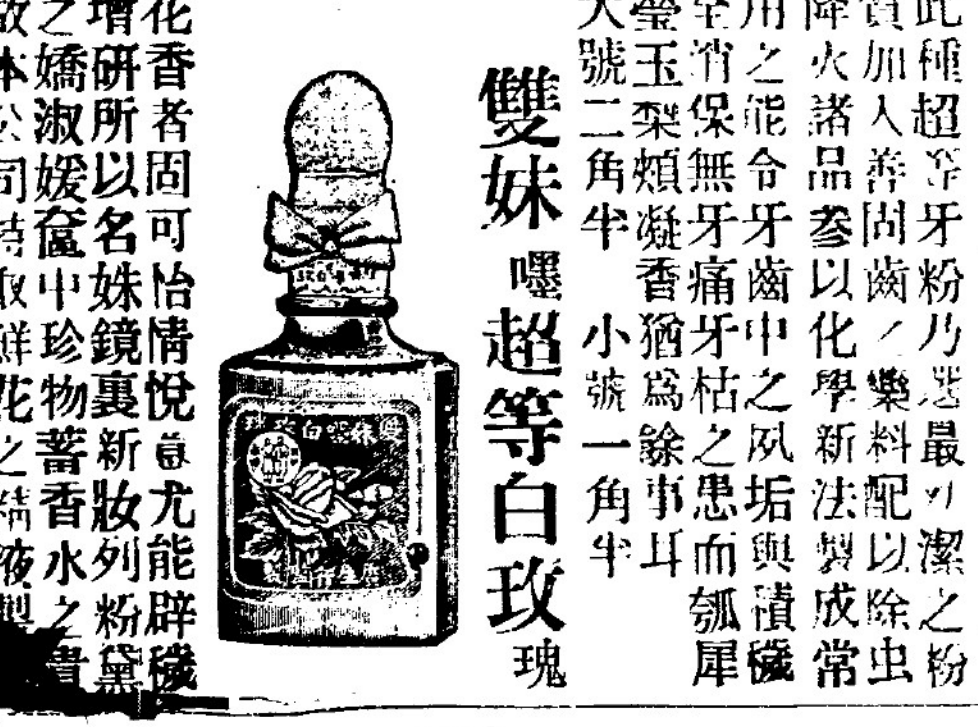 此種超等牙粉乃選最潔之粉
質加入善固齒藥料配以除虫
降火諸品參以化學新法製成常
用之能令牙齒中之夙垢與積穢
全消保無牙痛牙枯之患而瓠犀
瑩玉梨頰凝香猶為餘事耳
大號二角半 小號一角半
雙妹嚜超等白玫瑰
化香者固可怡情悅意尤能辟穢
增研所以名姝鏡裏新妝列粉黛
之嬌淑媛奩中珍物蓄香水之貴
故本公司特取鮮花之精液製